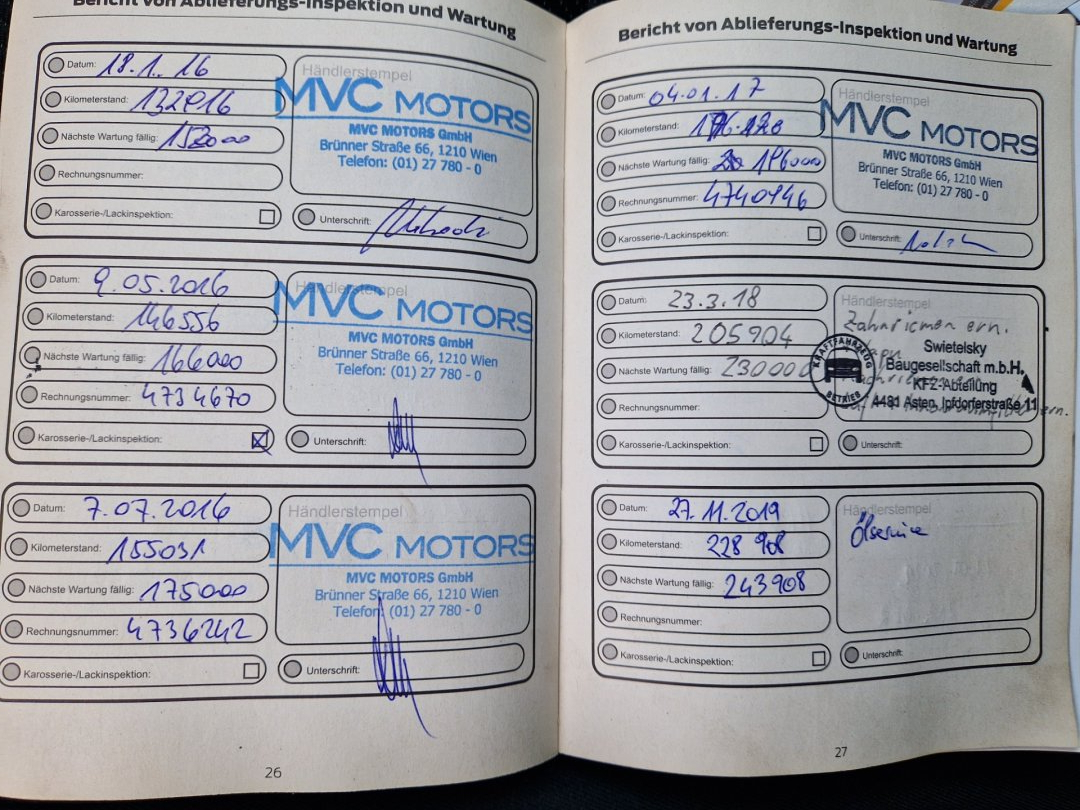 Bericht von Ablieferungs-Inspektion und Wartung
Datum: 18.1. 16
Kilometerstand: 132816
Nächste Wartung fällig: 152000
Rechnungsnummer:
Karosserie-/Lackinspektion:
Händlerstempel
MVC MOTORS
MVC MOTORS GmbH
Brünner Straße 66, 1210 Wien
Telefon: (01) 27 780 - 0
Unterschrift:
Datum: 9.05.2016
Kilometerstand: 146556
Nächste Wartung fällig: 166000
Rechnungsnummer: 4734670
Karosserie-/Lackinspektion:
Händlerstempel
MVC MOTORS
MVC MOTORS GmbH
Brünner Straße 66, 1210 Wien
Telefon: (01) 27 780 - 0
Unterschrift:
Datum: 7.07.2016
Kilometerstand: 155031
Nächste Wartung fällig: 175000
Rechnungsnummer: 4736242
Karosserie-/Lackinspektion:
Händlerstempel
MVC MOTORS
MVC MOTORS GmbH
Brünner Straße 66, 1210 Wien
Telefon: (01) 27 780 - 0
Unterschrift:
26
Bericht von Ablieferungs-Inspektion und Wartung
Datum: 04.01.17
Kilometerstand:
Nächste Wartung fällig: 196000
Rechnungsnummer: 4740946
Karosserie-/Lackinspektion:
Händlerstempel
MVC MOTORS
MVC MOTORS GmbH
Brünner Straße 66, 1210 Wien
Telefon: (01) 27 780 - 0
Unterschrift:
Datum: 23.3.18
Kilometerstand: 205904
Nächste Wartung fällig: 230000
Rechnungsnummer:
Karosserie-/Lackinspektion:
Händlerstempel
Zahnriemen ern.
KRAFTFAHRZEUG
BETRIEB
Swietelsky
Baugesellschaft m.b.H.
KFZ-Abteilung
4481 Asten, Ipfdorferstraße 11
ern.
Unterschrift:
Datum: 27.11.2019
Kilometerstand: 228 908
Nächste Wartung fällig: 243908
Rechnungsnummer:
Karosserie-/Lackinspektion:
Händlerstempel
Ölservice
Unterschrift:
27